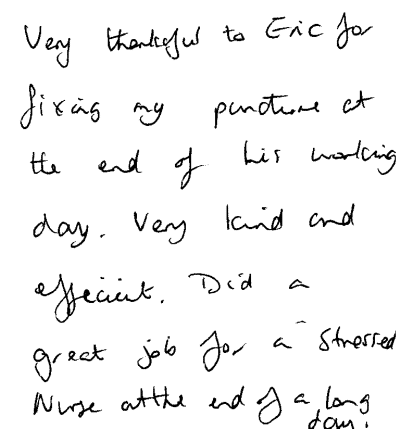 Very thankful to Eric for
fixing my puncture at
the end of his working
day. Very kind and
efficient. Did a
great job for a stressed
Nurse at the end of a long
day.